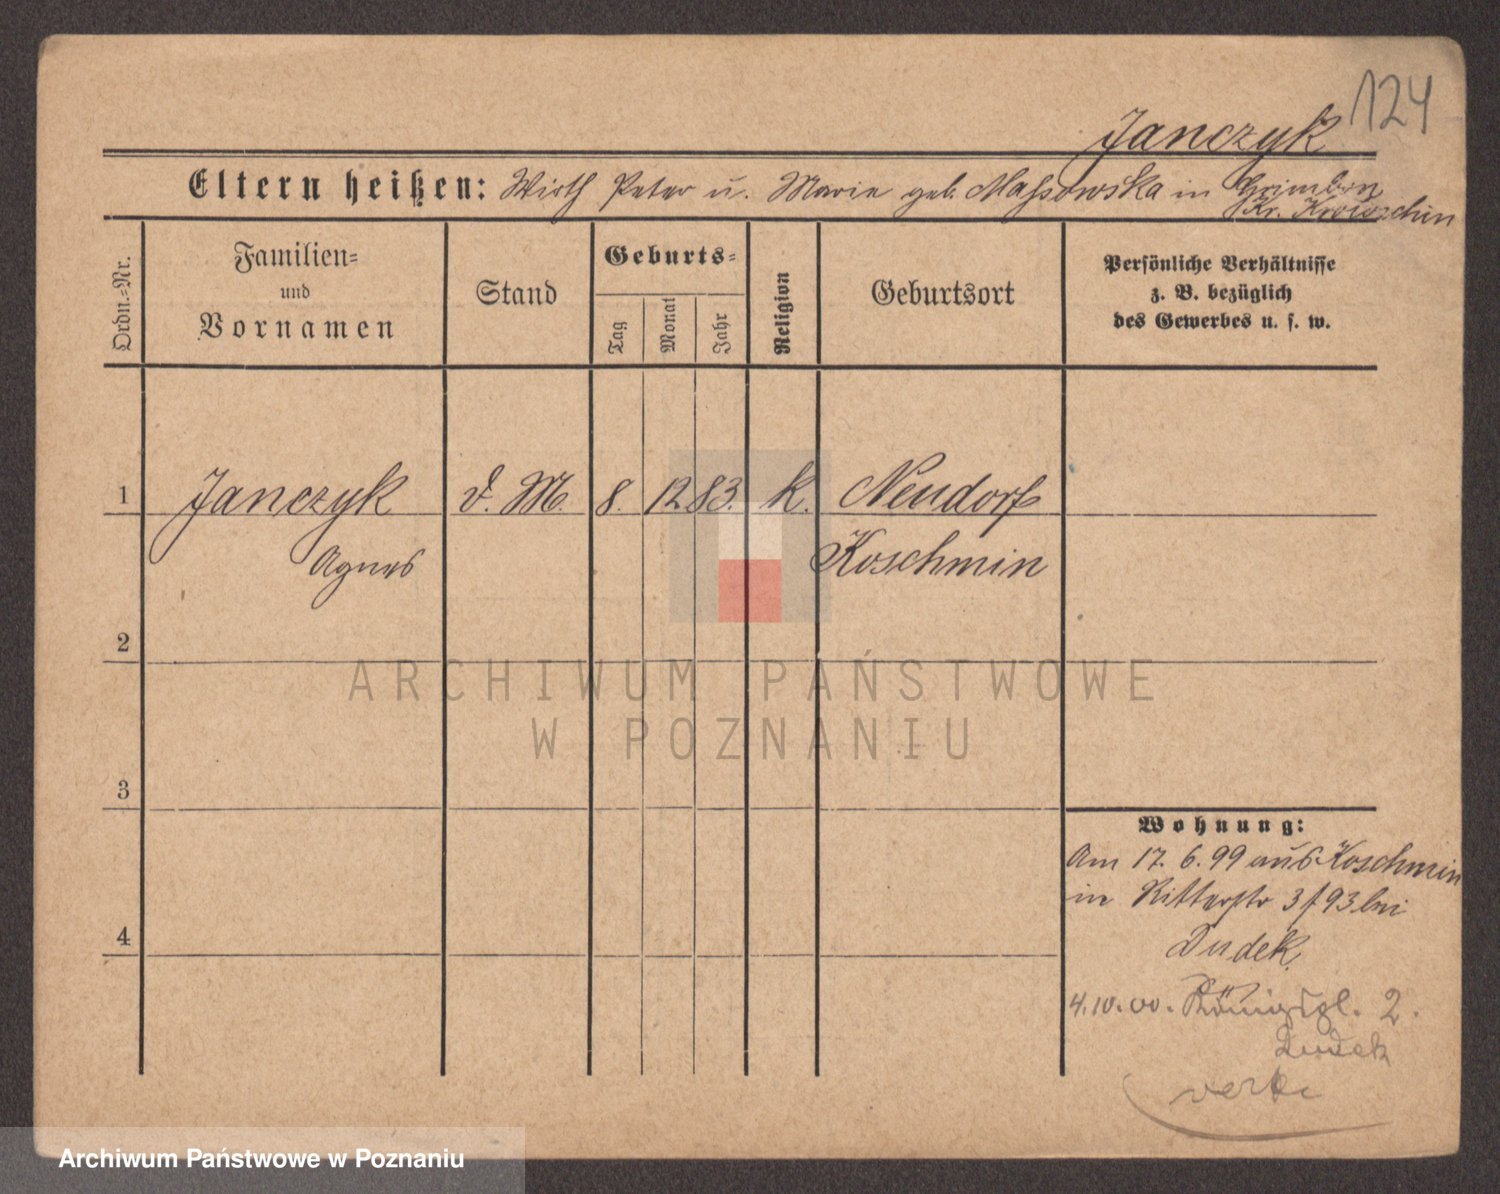 124
Janczyk
Eltern heißen: Wirth Peter u. Marie geb. Massowska in
Kr. Krotoschin
Ordn.-Nr.
Familien-
und
Vornamen
Stand
Geburts-
Tag
Monat
Jahr
Religion
Geburtsort
Persönliche Verhältnisse
z. B. bezüglich
des Gewerbes u. s. w.
1 Janczyk d. M. 8. 12 83. k. Neudorf
Agnes Koschmin
2
3
4
Wohnung:
Am 17. 6. 99 aus Koschmin
in Ritterstr 3 / 93 bei
Dudek
4.10.00. Königspl. 2.
Dudek
ARCHIWUM PAŃSTWOWE
W POZNANIU
Archiwum Państwowe w Poznaniu